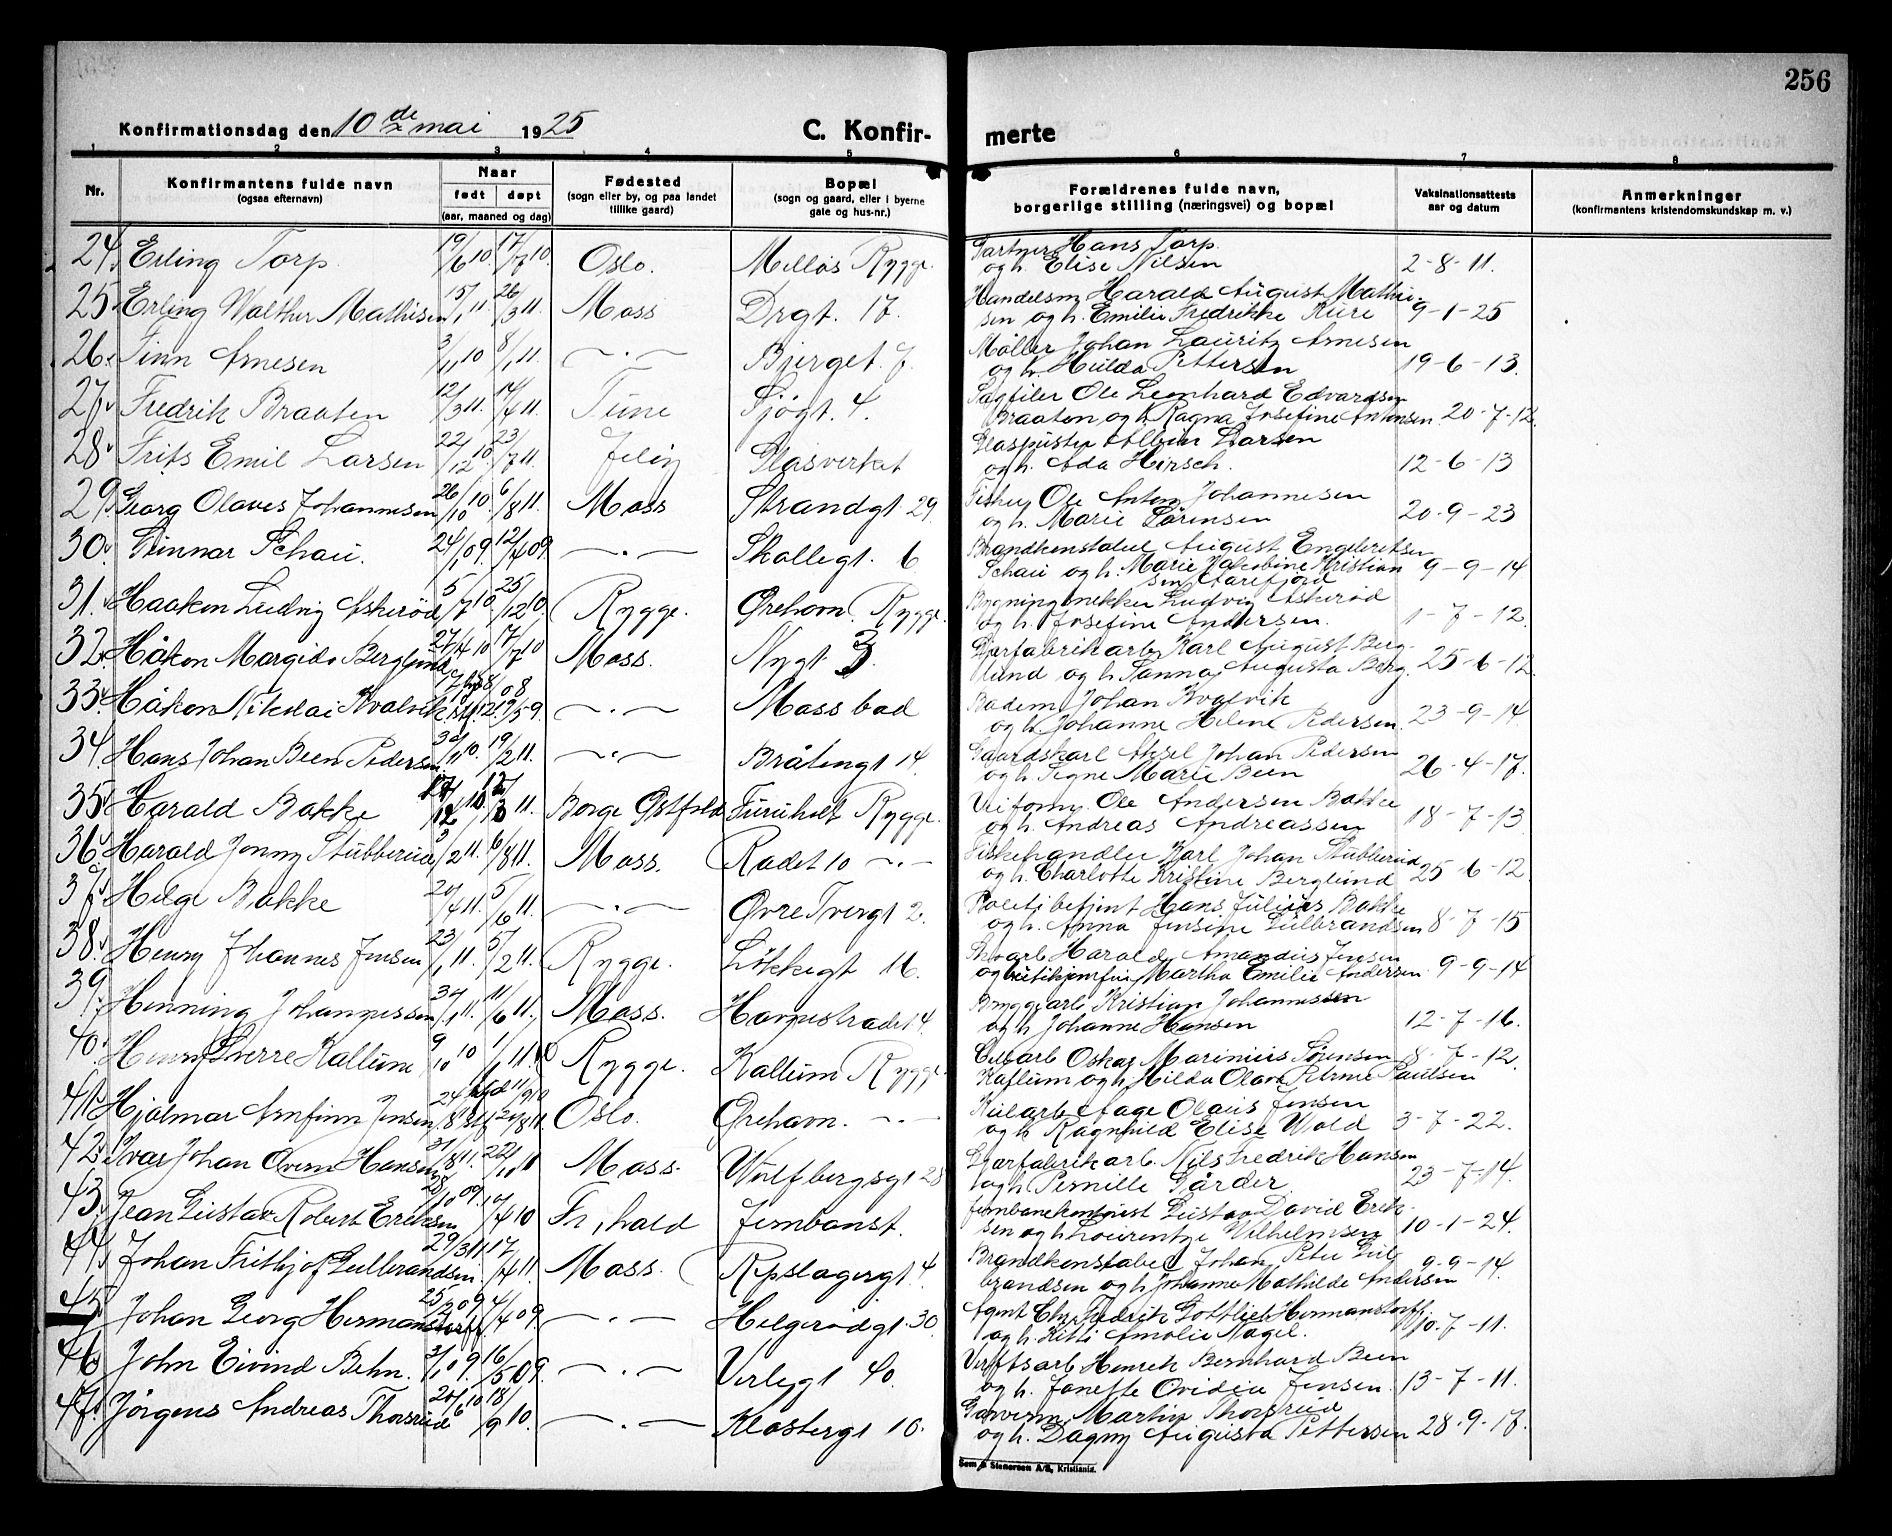 256
Konfirmationsdag den 10de mai 1925
C. Konfir- merte
1 2 3 4 5 6 7 8
Nr.
Konfirmantens fulde navn
(ogsaa efternavn)
Naar
født døpt
(aar, maaned og dag)
Fødested
(sogn eller by, og paa landet
tillike gaard)
Bopæl
(sogn og gaard, eller i byerne
gate og hus-nr.)
Forældrenes fulde navn,
borgerlige stilling (næringsvei) og bopæl
Vaksinationsattests
aar og datum
Anmerkninger
(konfirmantens kristendomskundskap m. v.)
24. Erling Torp 19/6 10. 17/7 10. Oslo. Melløs Rygge. Gartner Hans Torp
og h. Elise Nilsen 2-8-11.
25. Erling Walther Mathisen 15/1 11. 26/3 11. Moss Drgt. 17. Handelsm. Harald August Mathi-
sen og h. Emilie Fredrikke Kure 9-1-25
26. Finn Arnesen 3/11 10 8/1 11. —·— Bjerget 7. Møller Johan Lauritz Arnesen
og h. Hulda Pettersen 19-6-13.
27. Fredrik Braaten 12/3 11. 17/4 11. Tune Sjøgt. 4. Sagfiler Ole Leonhard Edvardsen
Braaten og h. Ragna Josefine Antonsen 20-7-12.
28. Frits Emil Larsen 22/12 10. 23/7 11. Jeløy Glasverket Glaspuster Albin Larsen
og h. Ada Hirsch. 12-6-13
29. Georg Olaves Johannesen 26/10 10 6/8 11. Moss Strandgt 29. Fisker Ole Anton Johannesen
og h. Marie Sørensen 20-9-23
30. Gunnar Schau. 24/1 09. 12/4 09. —·— Skollegt. 6 Brandkonstabel August Engebretsen
Schau og h. Marie Jakobine Kristian
sen Aarefjord 9-9-14
31. Haakon Ludvig Askerød 5/7 10. 25/12 10. Rygge. Ørehavn. Rygge. Bygningsnekker Ludvig Askerød
og h. Josefine Andersen. 1-7-12.
32. Håkon Margido Berglund 27/4 10 17/7 10 Moss. Nygt. 3. Djærfabrikarb. Karl August Berg-
lund og h. Sanna Augusta Berg. 25-6-12.
33. Håkon Nikolai Kvalvik —·— Moss bad Badem. Johan Kvalvik
og h. Johanne Helene Pedersen. 23-9-14.
34 Hans Johan Been Pedersen 19/2 11. —·— Bråtengt 14. Gaardskarl Aksel Johan Pedersen
og h. Signe Marie Been 26-4-17.
35. Harald Bakke Borge Østfold Furuholt Rygge. Veiform. Ole Andersen Bakke
og h. Andreas Andreassen 18-7-13
36. Harald Jonny Stubberud 3/2 11. 6/8 11. Moss. Rådet 10 —·— Fiskehandler Karl Johan Stubberud
og h. Charlotte Kristine Berglund 25-6-12.
37. Helge Bakke 20/4 11. 5/6 11. —·— Øvre Tvergt 2. Politibetjent Hans Julius Bakke
og h. Anna Jensine Gulbrandsen 8-7-15
38. Henry Johannes Jensen 23/1 11. 5/2 11. Rygge. Løkkegt 16. Harald Amandus Jensen
og Martha Emilie Andersen. 9-9-14
39. Henning Johannessen 11/6 11. Moss. Hammestradet 4. Bryggearb Kristian Johannessen
og h. Johanne Hansen 12-7-16.
40. Henry Sverre Kallum 9/10 10 Rygge. Kallum Rygge. Oskar Marinius Sørensen
Kallum og h. Hilda Olava Petrine Paulsen 8-7-12.
41. Hjalmar Arnfinn Jensen Oslo. Ørehavn. —·— Kularb Aage Olaus Jensen
og h. Ragnhild Elise Wold 3-7-22.
42. Ivar Johan Overn Hansen 31/8 11. 22/10 11 Moss. Wulfbergsgt 28 Djærfabrikarb. Nils Fredrik Hansen
og h. Pernille Gårder 23-7-14.
43. Jean Gustav Robert Eriksen 28/10 09. 17/4 10 Fr.hald Jernbanst. Jernbanekontorist Gustav David Erik-
sen og h. Laurentze Wilhelmsen 10-1-24.
44. Johan Frithjof Gulbrandsen 29/3 11. 17/4 11 Moss. Repslagergt 4. Brandkonstabel Johan Peter Gul-
brandsen og h. Johanne Mathilde Andersen 9-9-14.
45. Johan Georg Hermanstorff 25/2 09. 4/4 09. —·— Helgerødgt. 30. Agent Chr. Fredrik Gottlieb Hermanstorff.
og h. Kitti Amalie Nagel. 10-7-11.
46. John Eivind Behn. 3/1 09. 16/5 09. —·— Verlegt 40. Verftsarb Henrik Bernhard Been
og h. Janette Ovidia Jensen. 13-7-11.
47. Jørgens Andreas Thorsrud 20/6 10 18/9 10. —·— Klostergt 10. Garverm. Martin Thorsrud
og h. Dagny Augusta Pettersen 28-9-17.
Sem & Stenersen A/S, Kristiania.